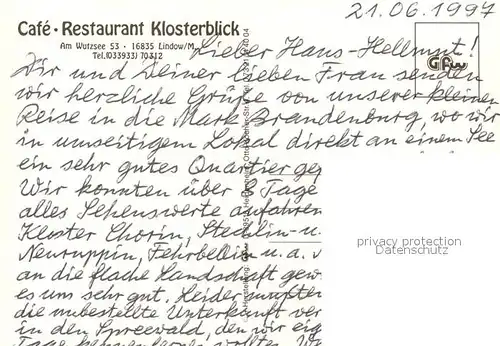 21.06.1997
Café · Restaurant Klosterblick
Am Wutzsee 53 · 16835 Lindow/M.
Tel. (033933) 70312
Lieber Hans-Hellmut!
Dir und Deiner lieben Frau senden
wir herzliche Grüße von unserer kleinen
Reise in die Mark Brandenburg, wo wir
in umseitigem Lokal direkt an einem See
ein sehr gutes Quartier
Wir konnten über 2 Tage
alles Sehenswerte anfahren
Kloster Chorin, Stechlin-u.
Neuruppin, Fehrbellin u.a.
an die flache Landschaft gew
es uns sehr gut. Leider mußten
die unbestellte Unterkunft ver
in den Spreewald, den wir eig
Tage kennenlernen wollten. W
privacy protection
Datenschutz